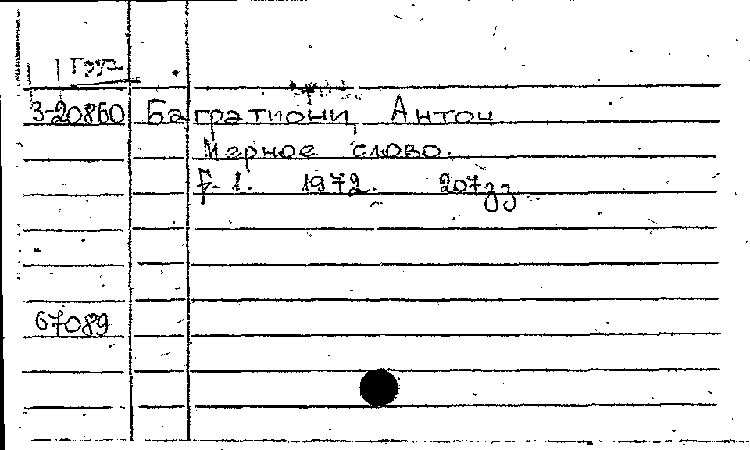 Груз
3-20860 Багратиони, Антон
Мерное слово.
Т. 1. 1972. 207
67089